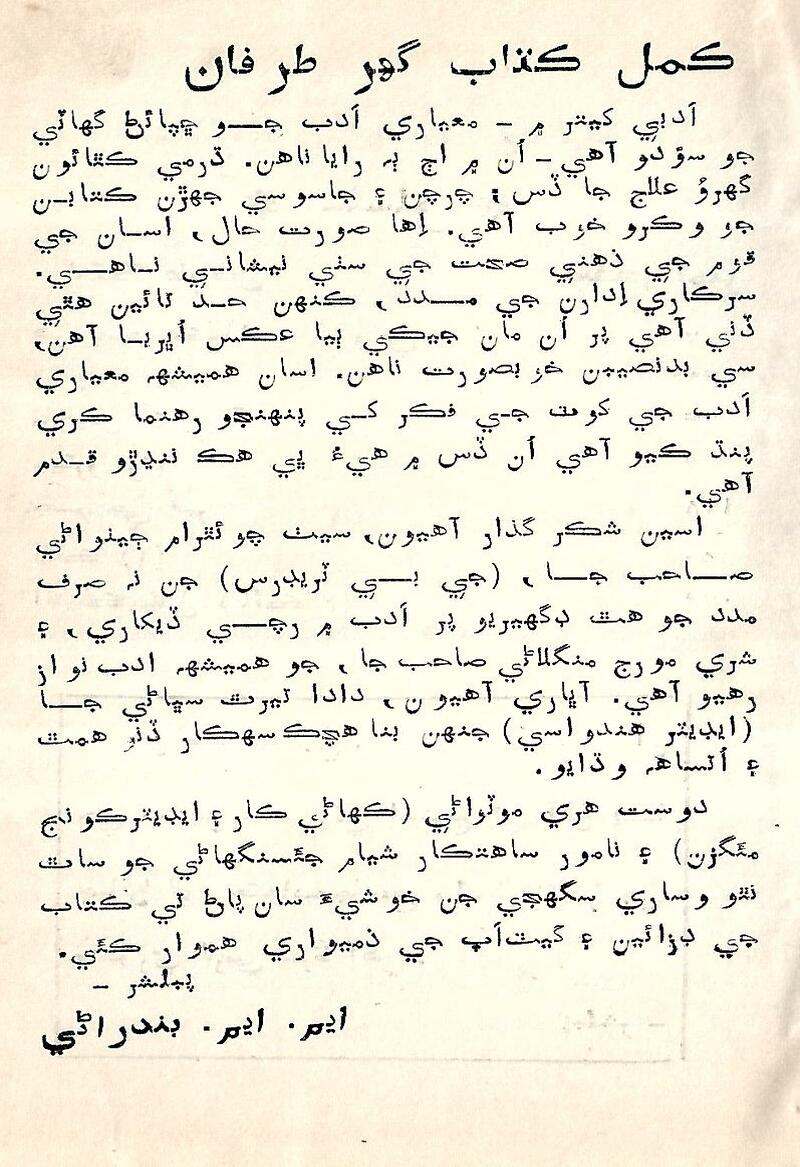 ڪمل ڪتاب گهر طرفان
اَدبي کيتر ۾ – معياري اَدب جو ڇپائڻ گهاٽي
جو سؤدو آهي – اُن ۾ اڄ ٻه رايا ناهن. ڌرمي ڪٿائون
گهروُ علاج جا ڏس، چرچن ۽ جاسوسي جهڙن ڪتابن
جو وڪرو خوب آهي. اِها صورت حال، اسان جي
قوم جي ذهني صحت جي سٺي نيشاني ناهي.
سرڪاري اِدارن جي مدد، ڪنهن حد تائين هٿي
ڏني آهي پر اُن مان جيڪي ٻيا عڪس اُڀريا آهن،
سي بدنصيبن خوبصورت ناهن. اسان هميشه معياري
اَدب جي کوٽ جي فڪر کي پنهنجو رهنما ڪري
پنڌ ڪيو آهي اُن ڏس ۾ هيءُ ٻي هڪ ننڍڙو قدم
آهي.
اسين شڪر گذار آهيون، سيٺ چوئٿرام جيٺواڻي
صاحب جا، (جي بي ٽريڊرس) جن نه صرف
مدد جو هٿ ڊگهيريو پر اَدب ۾ رچي ڏيکاري، ۽
شري مورج منگلاڻي صاحب جا، جو هميشه ادب نواز
رهيو آهي. آڀاري آهيون، دادا تيرٿ سڀاڻي جا
(ايڊيٽر هندواسي) جنهن بنا هٻڪ سهڪار ڏئي همٿ
۽ اُتساهه وڌايو.
دوست هري موٽواڻي (ڪهاڻي ڪار ۽ ايڊيٽر ڪونج
مئگزن) ۽ نامور ساهتڪار شيام جئسنگهاڻي جو ساٿ
نٿو وساري سگهجي جن خوشيءَ سان پاڻ تي ڪتاب
جي ڊزائين ۽ گيٽ اَپ جي ذميواري هموار ڪئي.
پبلشر –
ايم. ايم. بندراڻي